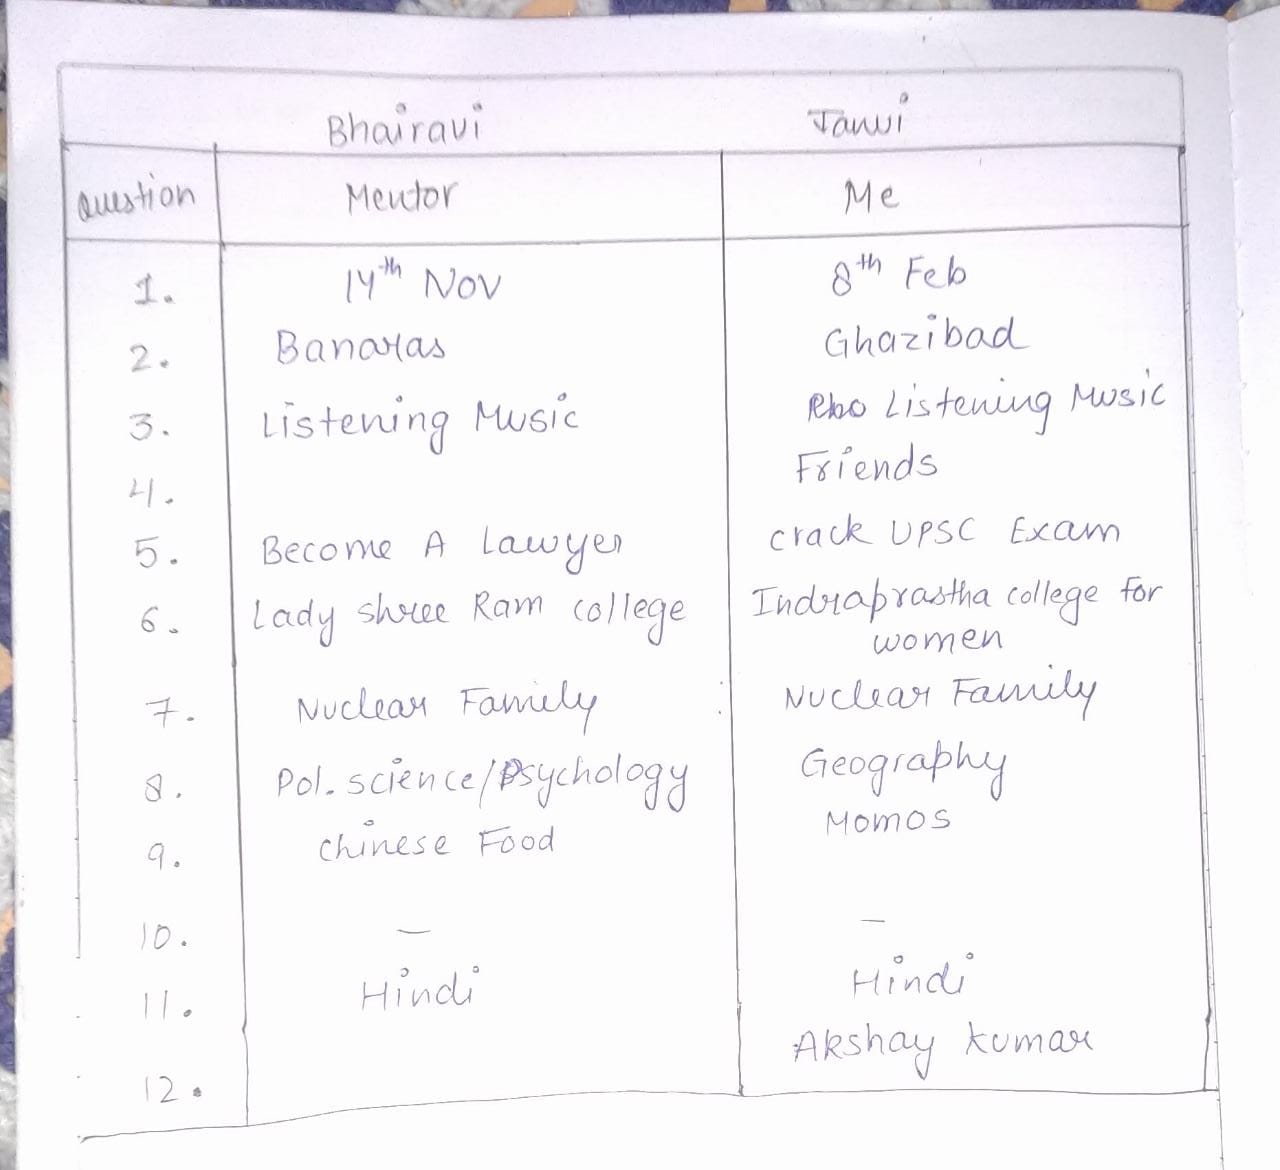 Bhairavi Tanvi
Question Mentor Me
1. 14th Nov 8th Feb
2. Banaras Ghazibad
3. Listening Music Listening Music
4. Friends
5. Become A Lawyer crack UPSC Exam
6. Lady shree Ram college Indraprastha college for
women
7. Nuclear Family Nuclear Family
8. Pol. science/Psychology Geography
9. Chinese Food Momos
10. — —
11. Hindi Hindi
12. Akshay kumar